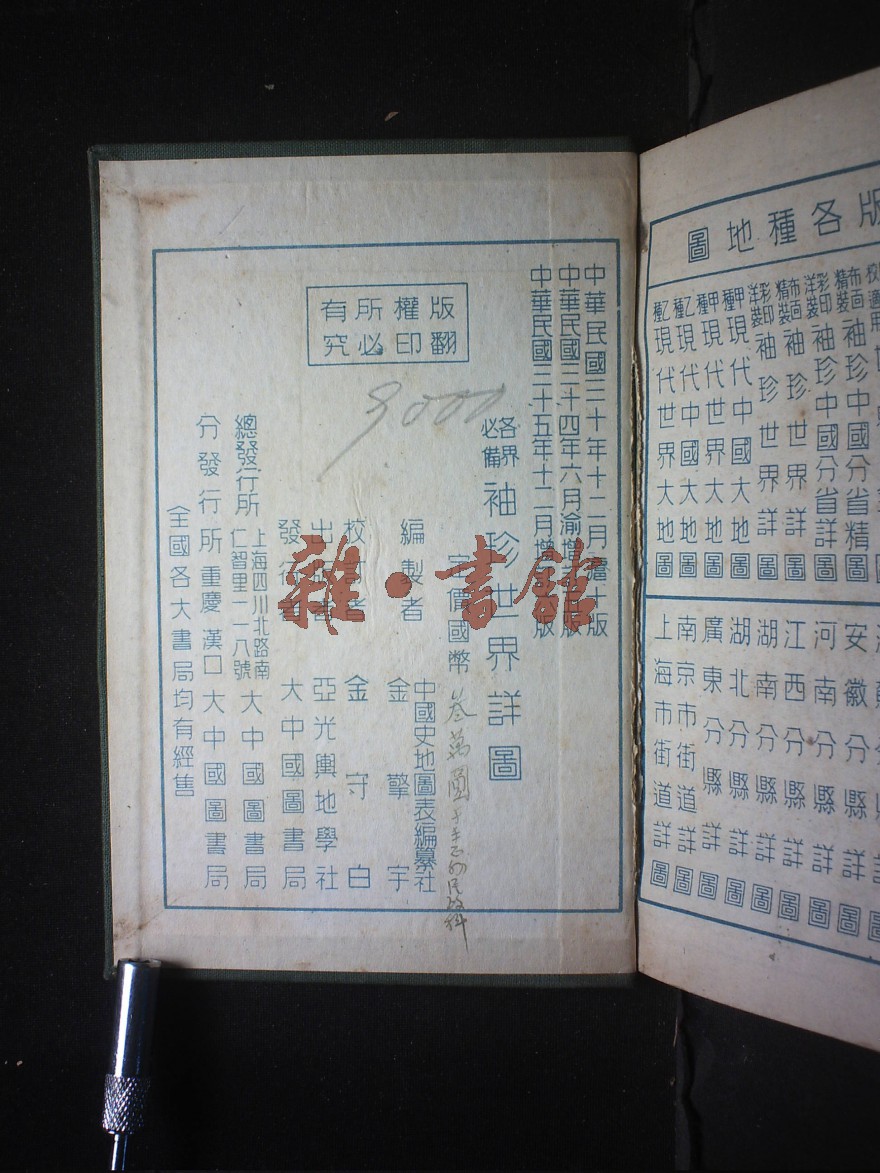 中華民國三十年十二月滬
版
中華民國三十四年六月渝增
版
中華民國三十五年十二月增
版
各界必備 袖珍世界詳圖
定價國幣
叁萬圓
編製者 中國史地圖表編纂社 金擎宇
校 者 金守白
出版者 亞光輿地學社
發行者 大中國圖書局
總發行所 上海四川北路南仁智里一一八號 大中國圖書局
分發行所 重慶 漢口 大中國圖書局
全國各大書局均有經售
版權所有
翻印必究
9000
雜·書館
版各種地圖
布面精裝 袖珍中國分省精圖
彩印洋裝 袖珍中國分省詳圖
布面精裝 袖珍世界詳圖
彩印洋裝 袖珍世界詳圖
甲種 現代中國大地圖
甲種 現代世界大地圖
乙種 現代中國大地圖
乙種 現代世界大地圖
安徽分縣詳圖
河南分縣詳圖
江西分縣詳圖
湖南分縣詳圖
湖北分縣詳圖
廣東分縣詳圖
南京市街道詳圖
上海市街道詳圖